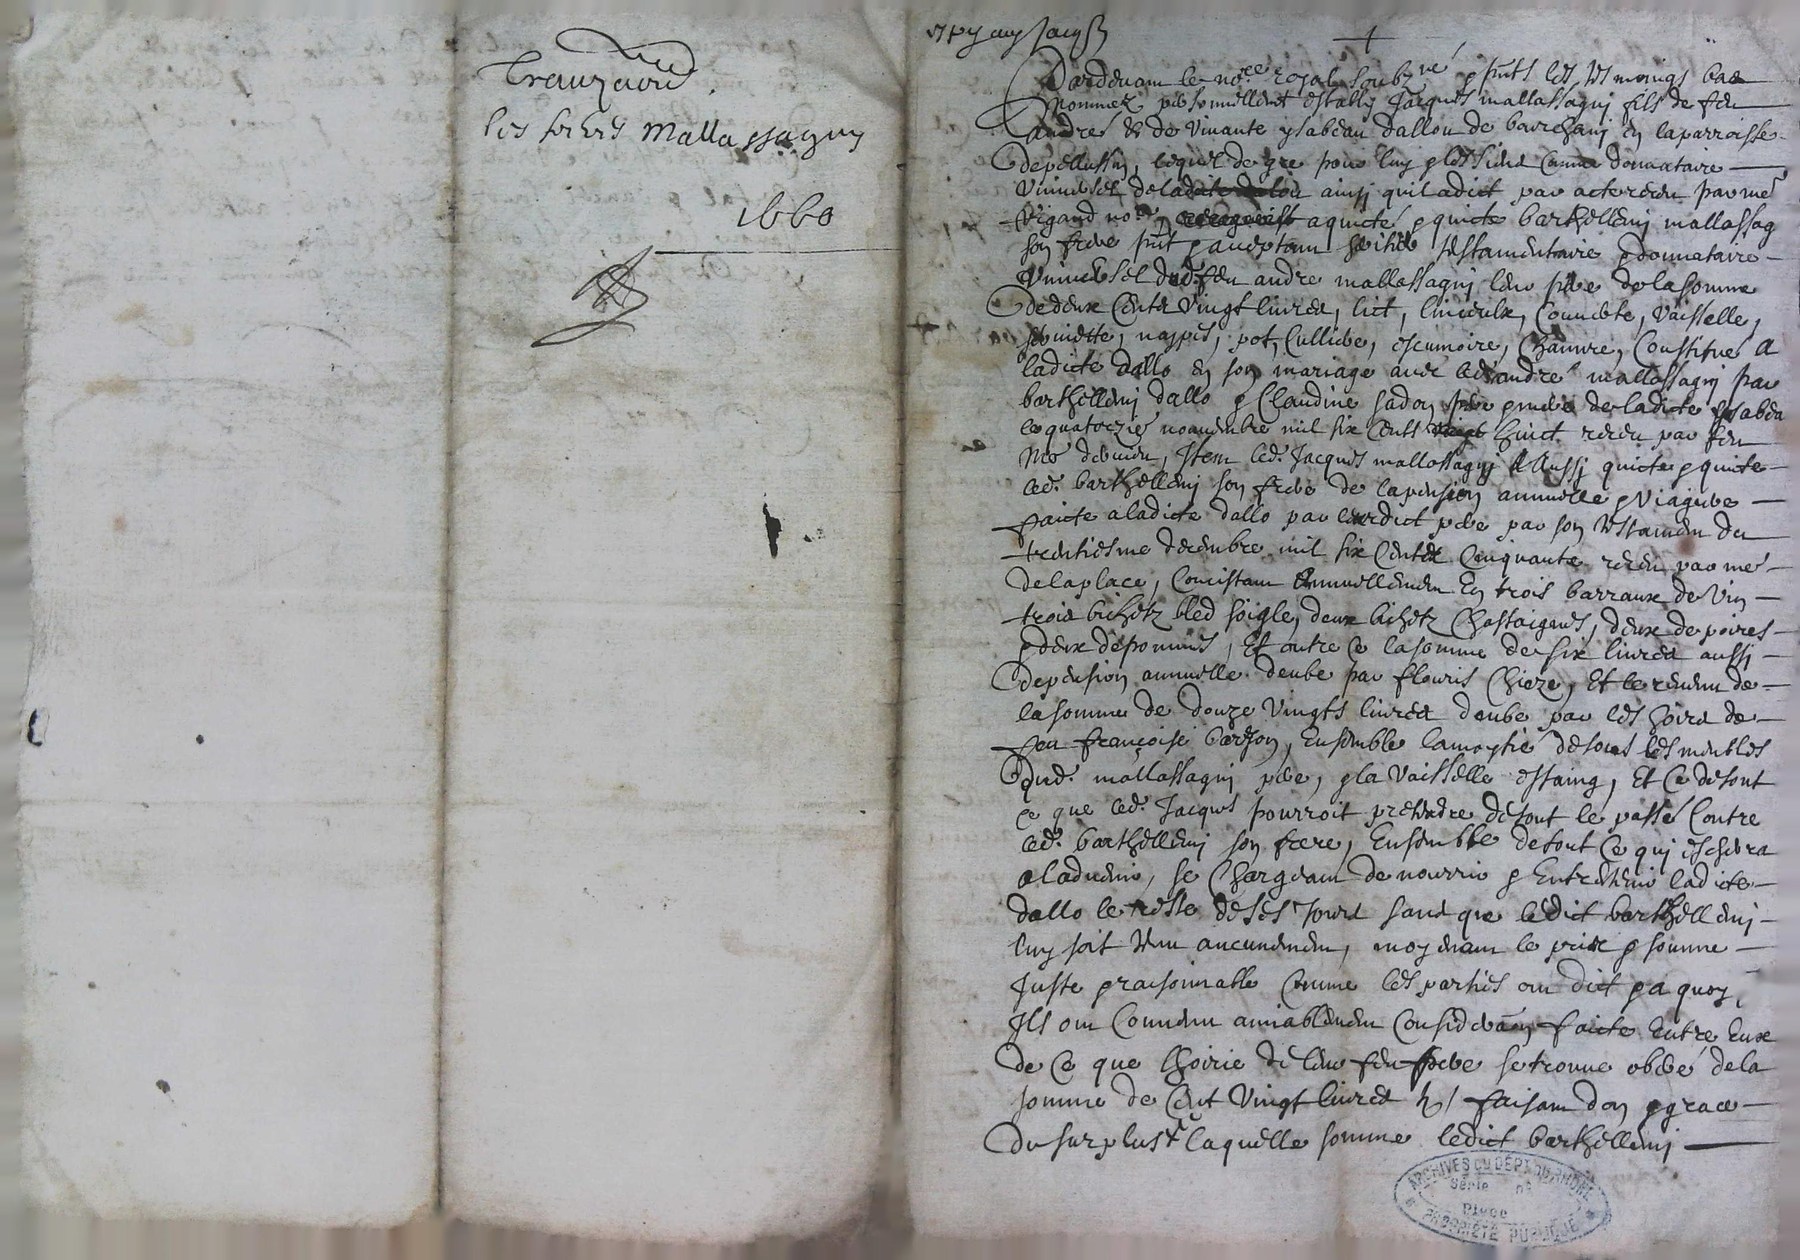 les freres Mallassagny
1660
Pardevant le no.re royal soubz.né p~nts les tesmoings bas
nommez personnellement estably Jacques mallassagnj fils de feu
andré & de vivante ysabeau dallou de barchanj en la parroisse
de pellussin, lequel de gre pour luy & les siens comme donnataire
universel de ladicte dallou ainsj quil a dict par acte receu par me
Rigaud no.re a quicté & quicte barthellemj mallassag
son frere p~nt & acceptant heritier testamentaire & donnataire
universel dud. feu andre mallassagnj leur pere de la somme
de deux cents vingt livres, lict, linceulx, couverte, vaisselle,
serviette, nappes, pot, culliere, escumoire, chanvre, constitué a
ladicte dallo en son mariage avec led. andré mallassagnj par
barthellemj dallo & Claudine jadon pere & mere de ladicte ysabea
le quatorzie novembre mil six cents huict receu par feu
me devieu, Item led. Jacques mallassagnj a Aussj quicté & quicte
led. barthellemj son frere de la pension annuelle & viagere
faicte a ladicte dallo par leurdict pere par son testament du
trentiesme decembre mil six cents cinquante receu par me
delaplace, concistant Annuellement En trois barraux de vin
trois bichetz bled soigle, deux bichetz chastaignes, deux de poires
& deux de pommes, Et outre ce la somme de six livres aussj
de pension annuelle deube par fleuris Chieze, Et le revenu de
la somme de douze vingts livres deube par les hoirs de
feu françoise barjon, Ensemble la moytié de tous les meubles
dud. mallassagnj pere, & la vaisselle estaing, Et ce de tout
ce que led. Jacques pourroit pretendre de tout le passé contre
led. barthellemj son frere, Ensemble de tout ce quj eschera
a ladvenir, se chargeant de nourrir & Entretenir ladicte
dallo le reste de ses jours sans que ledict barthellemj
luy soit tenu aucunement, moyenant le prix & somme
Juste & raisonnable comme les parties ont dict & a quoy
Ils ont convenu amiablement consideraon faicte Entre Eux
de ce que lhoirie de leur feu pere se trouve oberé de la
somme de cent vingt livres faisant don & grace
du surplus laquelle somme ledict barthellemj
ARCHIVES DU DEPT DU RHONE
Série n°
Pièce
PROPRIÉTÉ PUBLIQUE